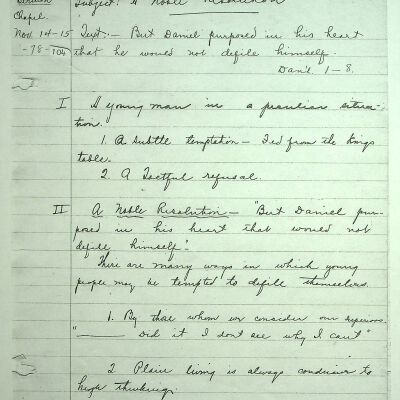 Subject: A Noble Resolution
Chapel.
Nov. 14-15
-78-104
Text:- But Daniel purposed in his heart
that he would not defile himself.
Dan'l. 1-8.
I A young man in a peculiar situa-
tion.
1. A subtle temptation - Fed from the Kings
table.
2. A Tactful refusal.
II A Noble Resolution - "But Daniel pur-
posed in his heart that would not
defile himself".
There are many ways in which young
people may be tempted to defile themselves.
1. By those whom we consider our superiors.
"——— Did it I don't see why I can't"
2 Plain living is always conducive to
high thinking.